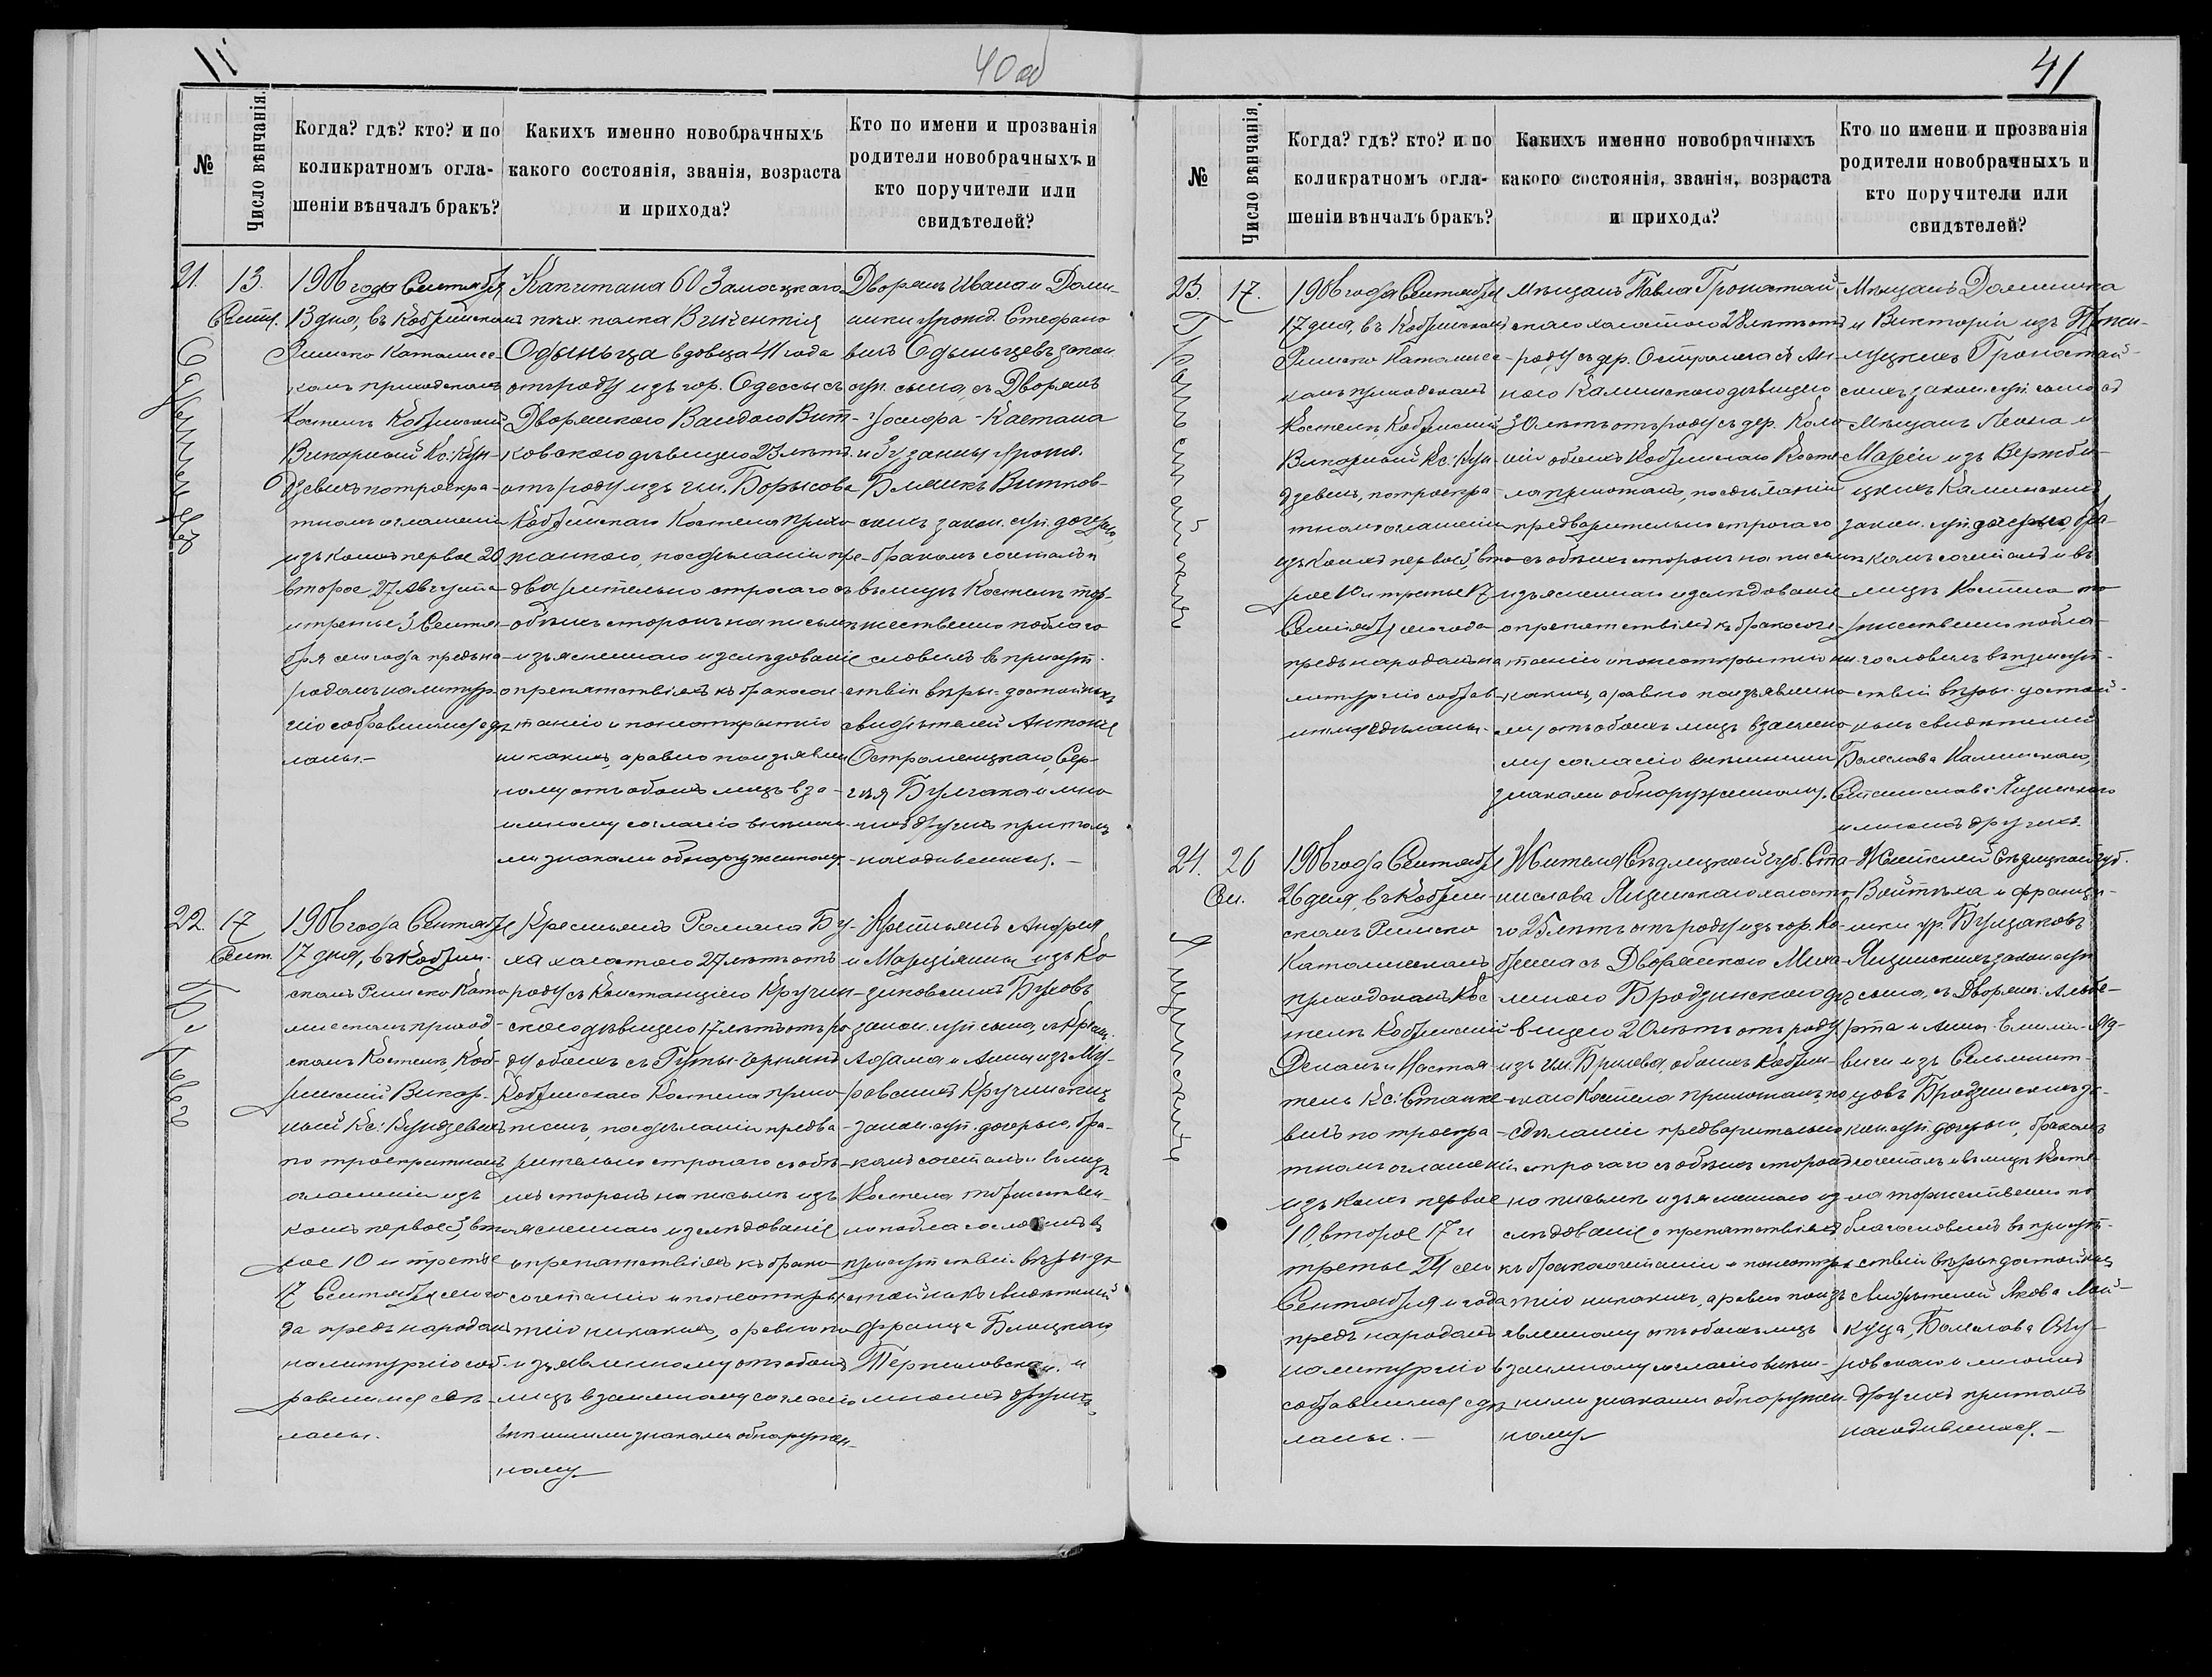 11
40 об
№
Число вѣнчанія.
Когда? гдѣ? кто? и по
коликратномъ огла-
шеніи вѣнчалъ бракъ?
Какихъ именно новобрачныхъ
какого состоянія, званія, возраста
и прихода?
Кто по имени и прозванія
родители новобрачныхъ и
кто поручители или
свидѣтелей?
21.
13.
Сент.
1906 года Сентября
13 дня, въ Кобринскомъ
Римско Католичес-
комъ приходскомъ
Костелѣ Кобринскій
Викарный Кс: Кун-
дзевичъ по троекра-
тномъ оглашеніи
изъ коихъ первое 20
второе 27 Августа
и третье 3 Сентя-
бря сего года предъ на-
родомъ на литур-
гію собравшимся сдѣ-
ланы.-
Капитана 60 Замосцкаго
пѣх. полка Викентія
Одыньца вдовца 41 года
отъ роду изъ гор. Одессы съ
Дворянкою Вандою Вит-
ковскою дѣвицею 23 лѣтъ
отъ роду изъ им. Борысова
Кобринскаго Костела прихо-
жанкою, по сдѣланіи пре-
дварительно строгаго съ
обѣихъ сторонъ на письмѣ
изъясненнаго изслѣдованіе
о препятствіяхъ къ бракосоч
танію и по неоткрытію
никакихъ, а равно по изъявлен
ному отъ обоихъ лицъ вза-
имному согласію внѣшни-
ми знаками обнаруженному
Дворянъ Ивана и Доми-
ники урожд. Стефано
вичъ Одыньцевъ закон.
суп. сына, съ Дворянъ
Іосифа-Каетана
и Зузанны урожд.
Блашкъ Витков-
скихъ закон. суп. дочерью,
бракомъ сочеталъ и
въ лицѣ Костела тор-
жественно по благо
словилъ въ присут-
ствіи вѣры-достойныхъ
свидѣтелей Антонія
Остроменцкаго, Сер-
гѣя Булгака и мно
гихъ другихъ притомъ
находившихся.-
22.
17
Сент.
1906 года Сентября
17 дня, въ Кобрин-
скомъ Римско Като
лическомъ приход-
скомъ Костелѣ, Коб-
ринскій Викар-
ный Кс: Кундзевичъ
по троекратномъ
оглашеніи изъ
коихъ первое 3, вто
рое 10 и третье
17 Сентября сего го
да предъ народомъ
на литургію соб-
равшимся сдѣ-
ланы.
Крестьянъ Романа Бу-
ха холостого 27 лѣтъ отъ
роду съ Констанціею Кручин-
скою дѣвицею 17 лѣтъ отъ ро
ду обоихъ съ Гуты-
Кобринскаго Костела прихо
жанъ, по сдѣланіи предва-
рительно строгаго съ обѣ-
ихъ сторонъ на письмѣ изъ
ясненнаго изслѣдованіе
о препятствіяхъ къ брако-
сочетанію и по неоткры
тію никакихъ, а равно по
изъявленному отъ обоихъ
лицъ взаимному согласію
внѣшними знаками обнаружен-
ному
Крестьянъ Андрея
и Марціянны изъ Ко
зиковскихъ Буховъ
закон. суп. сына, съ Крест.
Адама и Анны изъ Му-
равскихъ Кручинскихъ
закон. суп. дочерью, бра-
комъ сочеталъ и въ лицѣ
Костела торжествен-
но поблагословилъ въ
присутствіи вѣры-до
стойныхъ свидѣтелей
Франца Блоцкаго
и
многихъ другихъ
41
№
Число вѣнчанія.
Когда? гдѣ? кто? и по
коликратномъ огла-
шеніи вѣнчалъ бракъ?
Какихъ именно новобрачныхъ
какого состоянія, званія, возраста
и прихода?
Кто по имени и прозванія
родители новобрачныхъ и
кто поручители или
свидѣтелей?
23.
17.
1906 года Сентября
17 дня, въ Кобринскомъ
Римско Католичес-
комъ приходскомъ
Костелѣ, Кобринскій
Викарный Кс: Кун-
дзевичъ, по троекра-
тномъ оглашеніи
изъ коихъ первое 3, вто-
рое 10 и третье 17
Сентября сего года
предъ народомъ на
литургію собрав-
шимся сдѣланы.
Мѣщанъ Павла Гроностай-
скаго холостого 28 лѣтъ отъ
роду съ дер. Остромича съ Ан-
ною Калинскою дѣвицею
30 лѣтъ отъ роду съ дер.
обоихъ Кобринскаго Косте-
ла прихожанъ, по сдѣланіи
предварительно строгаго
съ обѣихъ сторонъ на письмѣ
изъясненнаго изслѣдованіе
о препятствіяхъ къ бракосоче-
танію и по неоткрытію ни-
какихъ, а равно по изъявленно-
му отъ обоихъ лицъ взаимно-
му согласію внѣшними
знаками обнаруженному.
Мѣщанъ Доминика
и Викторіи изъ
Гроностай-
скихъ закон. суп. сына съ
Мѣщанъ Леона и
Маріи изъ Вержби-
цкихъ Калинскихъ
закон. суп. дочерью, бра-
комъ сочеталъ и въ
лицѣ Костела то
ржественно побла-
гословилъ въ присут-
ствіи вѣры-достой-
ныхъ свидѣтелей
Болеслава Калинскаго,
Станислава Яцынскаго
и многихъ другихъ
24.
26
Сен.
1906 года Сентября
26 дня, въ Кобрин-
скомъ Римско
Католическомъ
приходскомъ Кос-
телѣ Кобринскій
Деканъ и Настоя-
тель Кс: Станке-
вичъ по троекра-
тномъ оглашеніи
изъ коихъ первое
10, второе 17 и
третье 24 сего
Сентября и года
предъ народомъ
на литургію
собравшимся сдѣ
ланы.-
Жителя Сѣдлецкой губ. Ста-
нислава Яцынскаго холосто-
го 25 лѣтъ отъ роду изъ гор. Ко-
брина съ Дворянкою Миха-
линою Бродзинскою дѣ
вицею 20 лѣтъ отъ роду
изъ им. Брилева, обоихъ Кобрин-
скаго Костела прихожанъ, по
сдѣланіи предварительно
строгаго съ обѣихъ сторонъ
на письмѣ изъясненнаго из
слѣдованіе о препятствіяхъ
къ бракосочетанію и по неоткры
тію никакихъ, а равно по изъ
явленному отъ обоихъ лицъ
взаимному согласію внѣш-
ними знаками обнаружен-
ному
Жителей Сѣдлецкой губ.
Войтѣха и Францы-
шки ур. Бущаковъ
Яцынскихъ закон. суп
сына, съ Дворянъ: Альбе-
рта и Анны-Емилии-
изъ
Бродзинскихъ за-
кон. суп. дочерью, бракомъ
сочеталъ и въ лицѣ Косте-
ла торжественно по
благословилъ въ присут-
ствіи вѣры-достойныхъ
свидѣтелей Якова
Болеслава
и многихъ
другихъ притомъ
находившихся.-